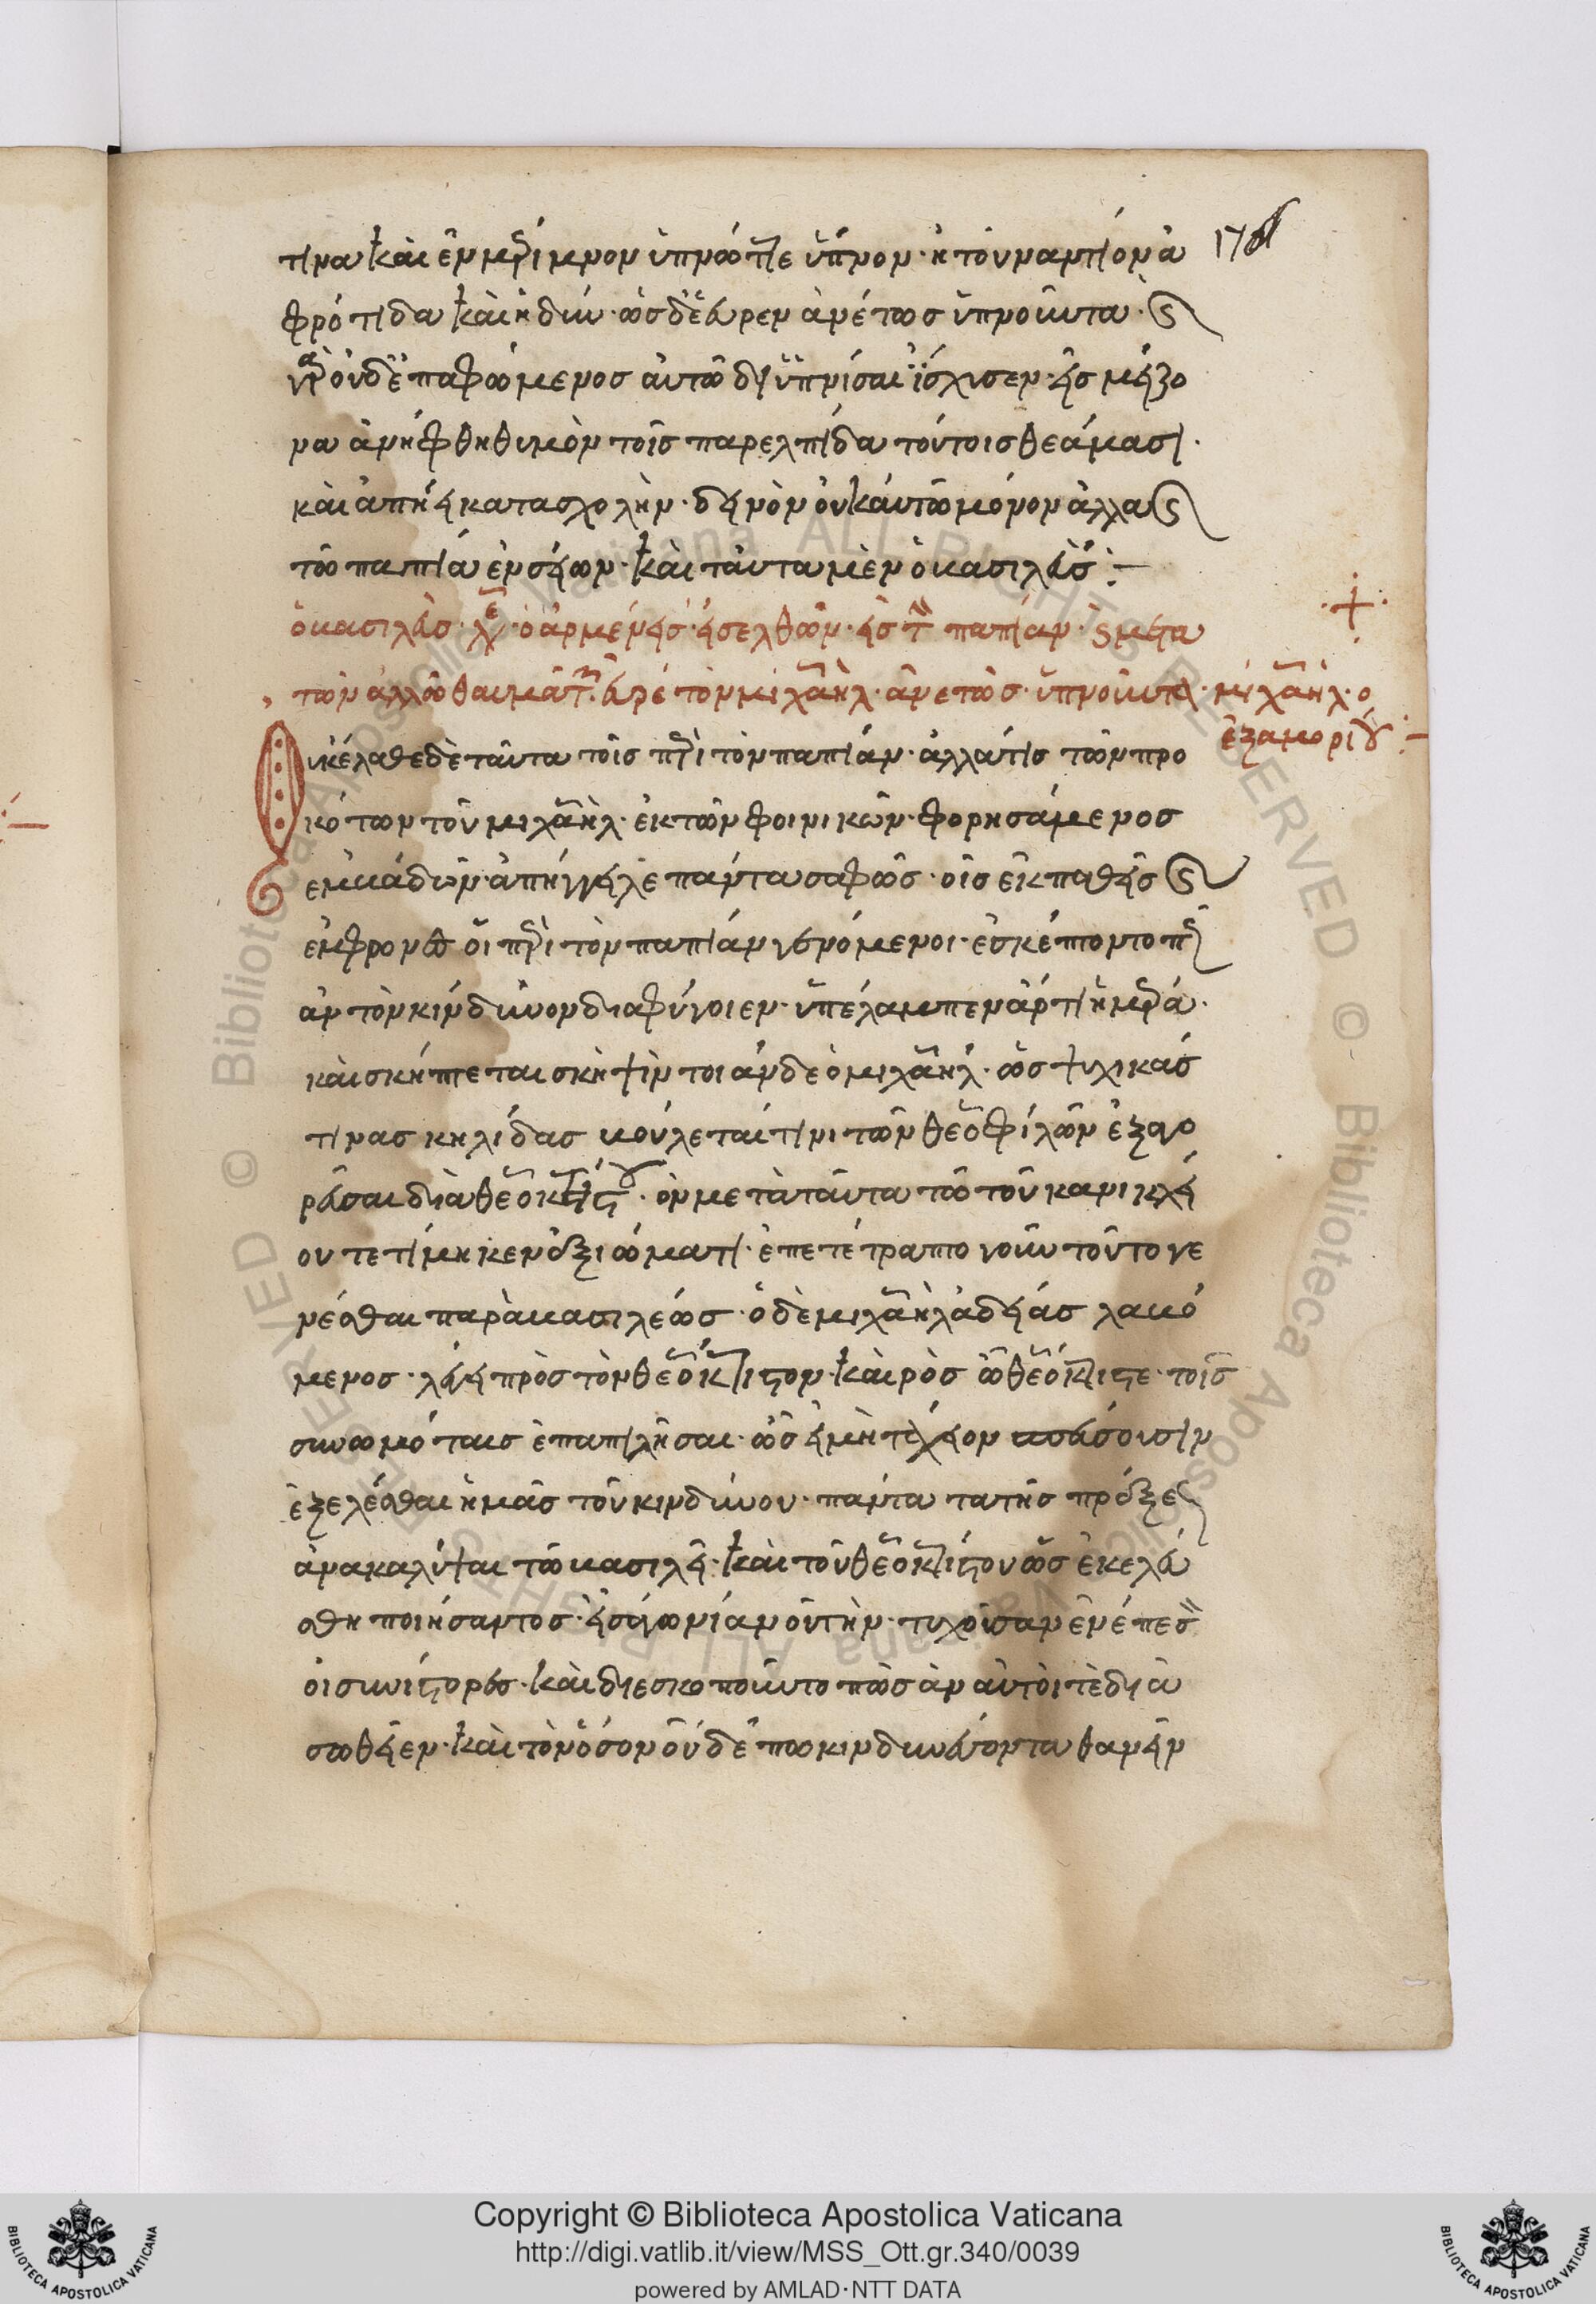 τινα καὶ ἐμμέριμνον ὑπνώττει ὕπνον· ἢ τοὐναντίον ἀ
φρόντιδα καὶ ἡδύν· ὡς δ' εὗρεν ἀνέτως ὑπνοῦντα· καὶ
γὰρ οὐδ' ἐπαφώμενος αὐτῶ διυπνίσαι ἴσχυσεν· εἰς μείζο
να ἀνήφθη θυμὸν τοῖς παρ ἐλπίδα τούτοις θεάμασι·
καὶ ἀπῄει κατα σχολὴν· δεινὸν οὐ κ' αὐτῶ μόνον ἀλλὰ καὶ
τῶ παπία ἐνσείων· καὶ ταῦτα μὲν ὁ βασιλεύς:—
ὁ βασιλεὺς λέων ὁ ἀρμένης· εἰσελθὼν· εἰς τὸν παπίαν· καὶ μετα
τῶν ἄλλων θαυμάτων· εὗρε τὸν μιχαὴλ· ἀνετῶς· ὑπνοῦντα·
μιχαὴλ· ὁ
ἐξαμορίου:—
Οὐκ ἔλαθε δὲ ταῦτα τοῖς περὶ τὸν παπίαν· ἀλλά τις τῶν προ
κοίτων τοῦ μιχαὴλ· ἐκ τῶν φοινικῶν· φορησάμενος
ἐμβάδων· ἀπήγγειλε πάντα σαφῶς· οἷς ἐκπαθεῖς καὶ
ἔμφρονες οἱ περὶ τὸν παπίαν γενόμενοι· ἐσκέπτοντο πῶς
ἂν τὸν κίνδυνον διαφύγοιεν· ὑπέλαμπεν ἄρτι ἡμέρα·
καὶ σκήπτεται σκῆψιν τοιάνδε ὁ μιχαὴλ· ὡς ψυχικάς
τινας κηλίδας βούλεταί τινι τῶν θεοφιλῶν ἐξαγο
ρεῦσαι διὰ θεοκτίστου· ὃν μετὰ ταῦτα τῶ τοῦ κανικλεί
ου τετίμηκεν ἀξιώματι· ἐπετέτραπτο γοῦν τοῦτο γε
νέσθαι παρὰ βασιλέως· ὁ δὲ μιχαὴλ ἀδείας λαβό
μενος· λέγει πρὸς τὸν θεόκτιστον· καιρὸς ὦ θεόκτιστε· τοῖς
συνωμόταις ἐπαπειλῆσαι· ὡς εἰ μὴ τάχειον σπεύσουσιν
ἐξελέσθαι ἡμᾶς τοῦ κινδύνου· πάντα τὰ τῆς πράξεως
ἀνακαλύψαι τῶ βασιλεῖ· καὶ τοῦ θεοκτίστου ὡς ἐκελεύ
σθη ποιήσαντος· εἰς ἀγωνίαν οὔτην· τυχοῦσαν ἐνέπεσον
οἱ συνίστορες· καὶ διεσκοποῦντο πῶς ἂν αὐτοί τε δια
σωθεῖεν· καὶ τὸν ὅσον οὐδέπω κινδυνεύοντα θανεῖν